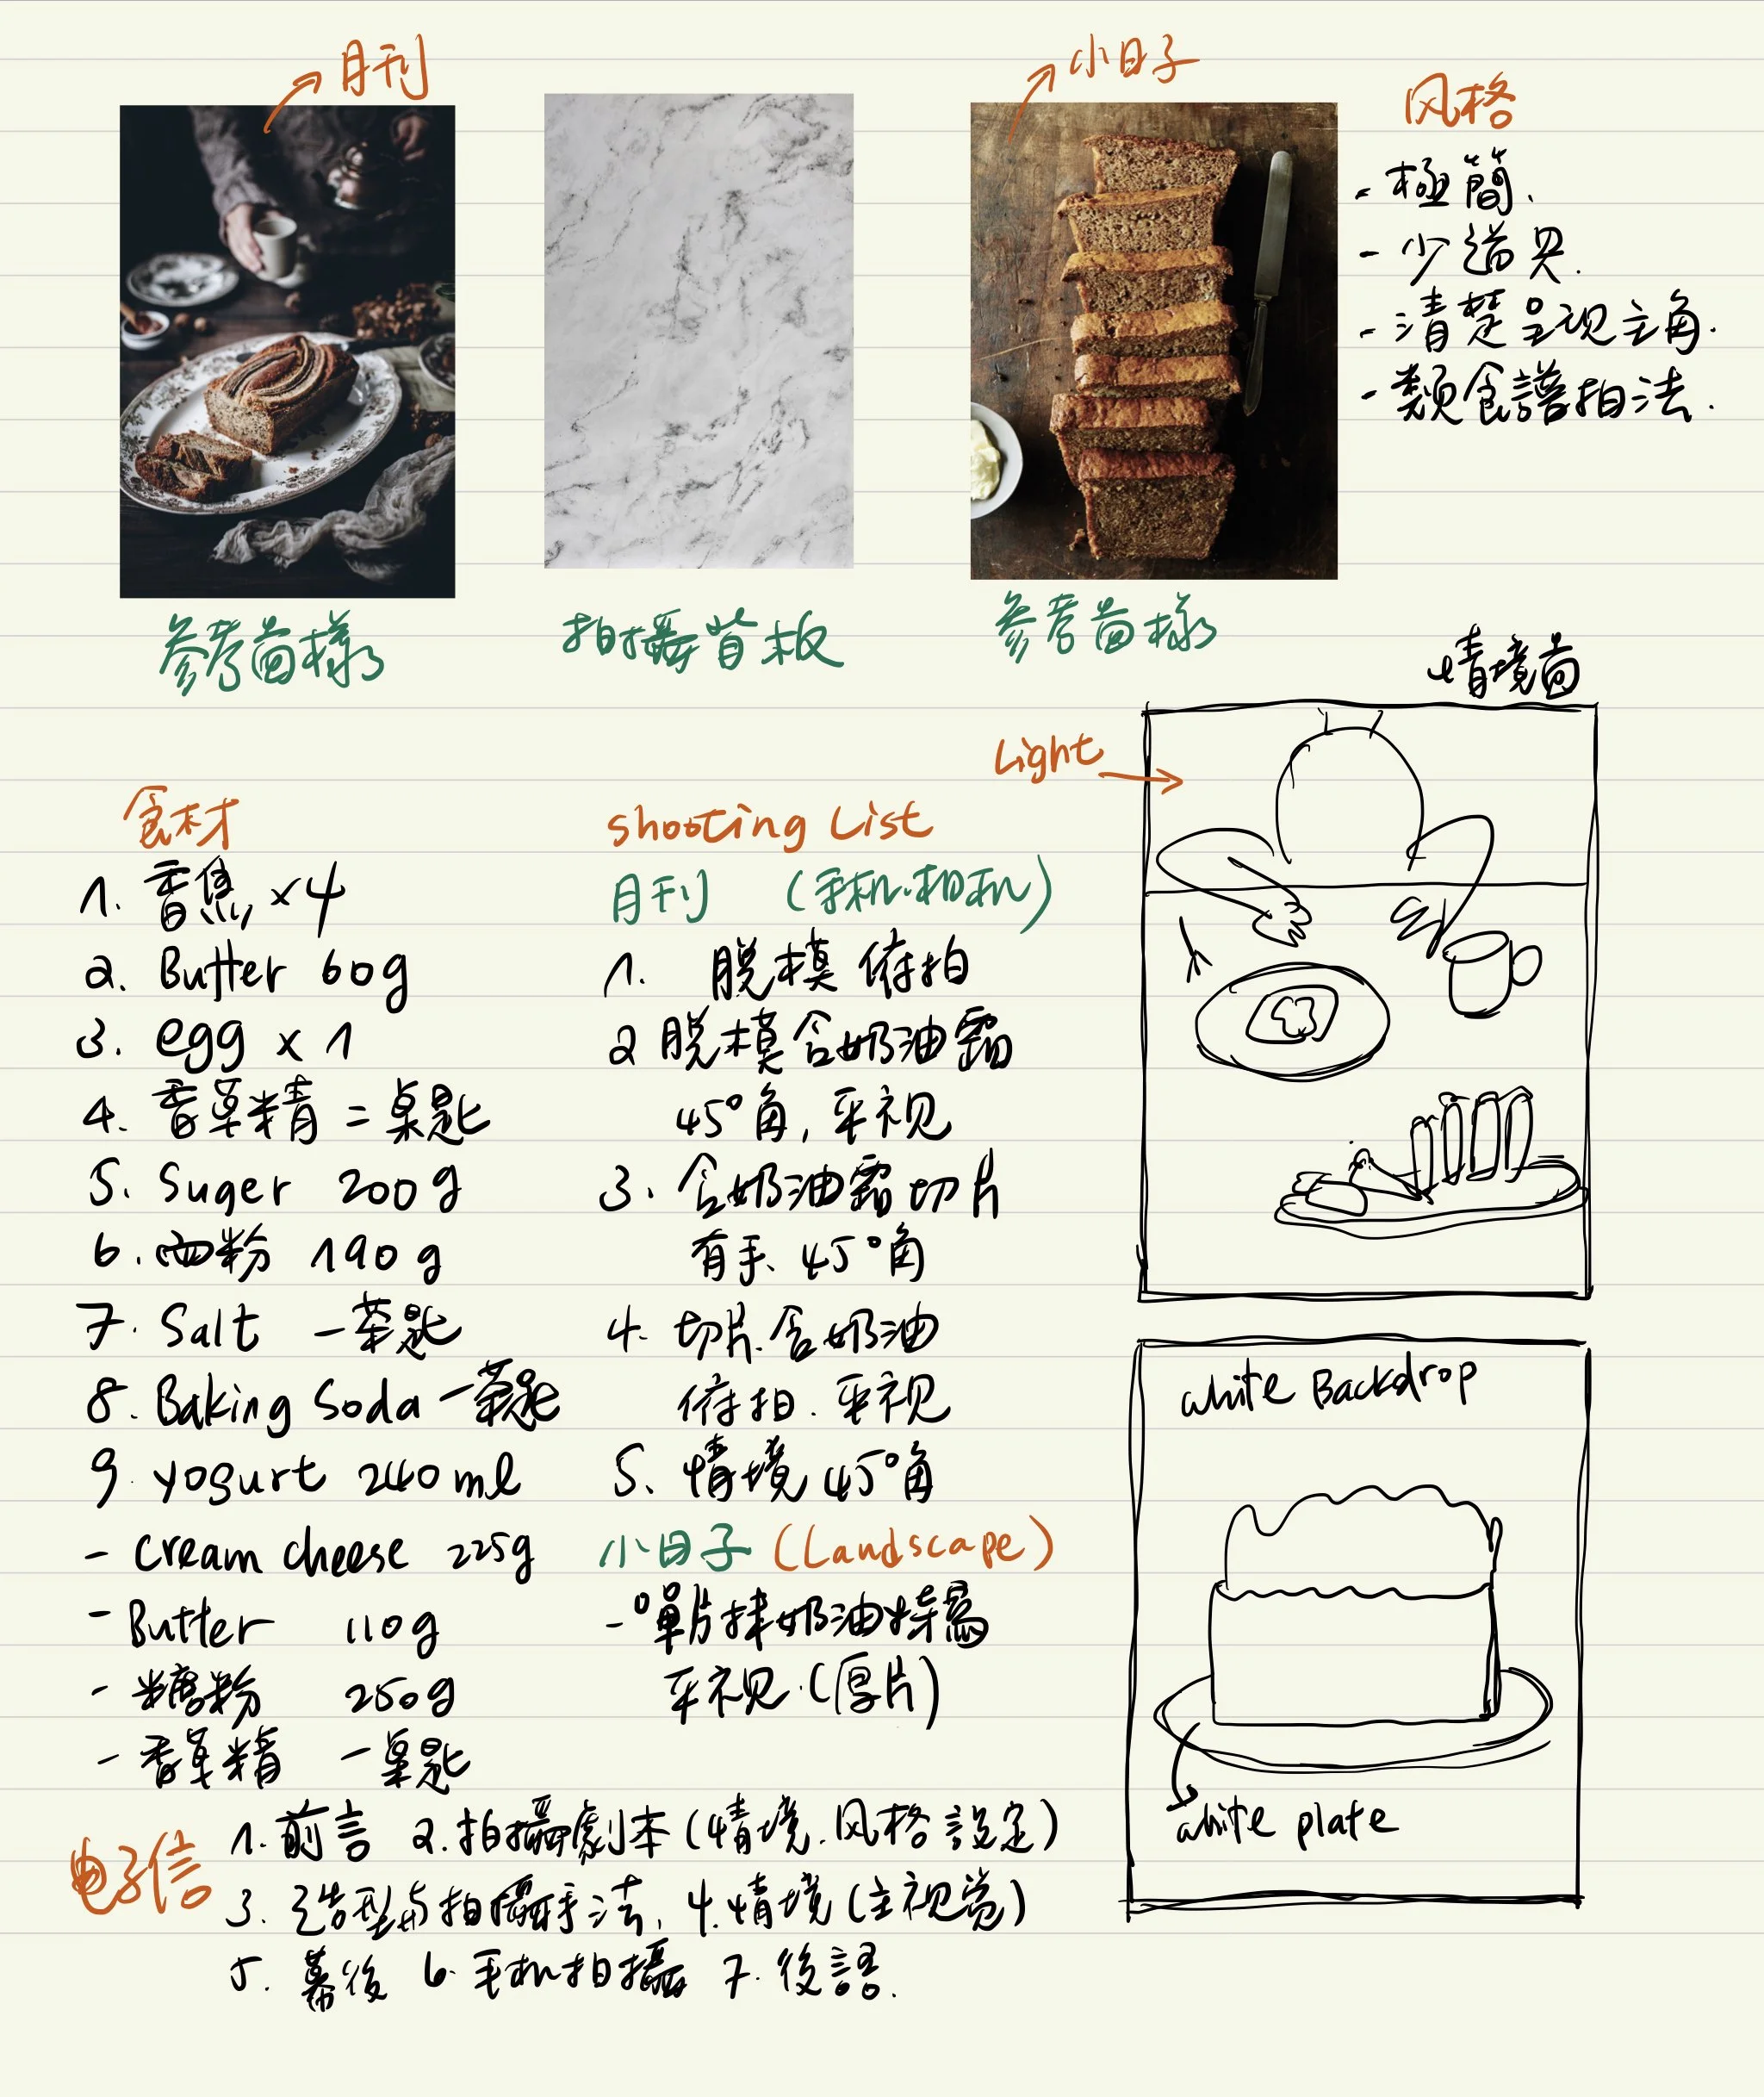 月刊
小日子
风格
- 極簡.
- 少道具.
- 清楚呈现主角.
- 類食譜拍法.
参考啚樣
拍攝背板
参考啚樣
情境啚
Light
食材
1. 香蕉 x4
2. Butter 60g
3. egg x 1
4. 香草精 = 桌匙
5. Suger 200g
6. 面粉 190g
7. Salt 一茶匙
8. Baking Soda 一茶匙
9. yogurt 240ml
- cream cheese 225g
- Butter 110g
- 糖粉 250g
- 香草精 一桌匙
shooting List
月刊 (手机.相机)
1. 脱模 俯拍
2 脱模含奶油霜
45°角, 平视
3. 含奶油霜切片
有手、45°角
4. 切片.含奶油
俯拍. 平视
5. 情境 45°角
小日子 (Landscape)
- 單片抹奶油特寫
平视.(厚片)
white Backdrop
white plate
电子信
1. 前言 2. 拍攝劇本 (情境.风格設定)
3. 造型与拍攝手法. 4. 情境 (主视觉)
5. 幕後 6. 手机拍攝 7. 後語.